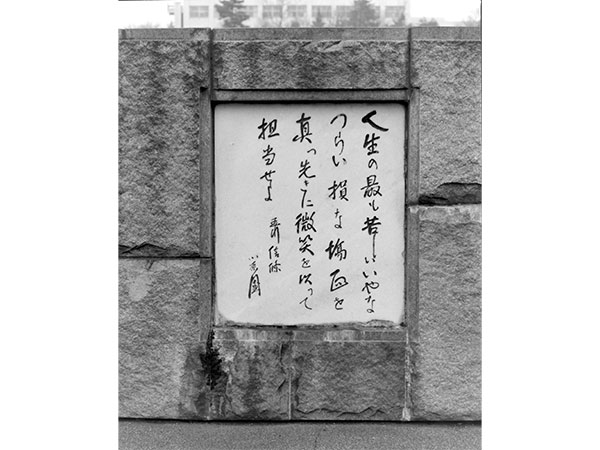 人生の最も苦しいいやな
つらい損な場面を
真っ先きに微笑を以って
担当せよ
信條
小原國